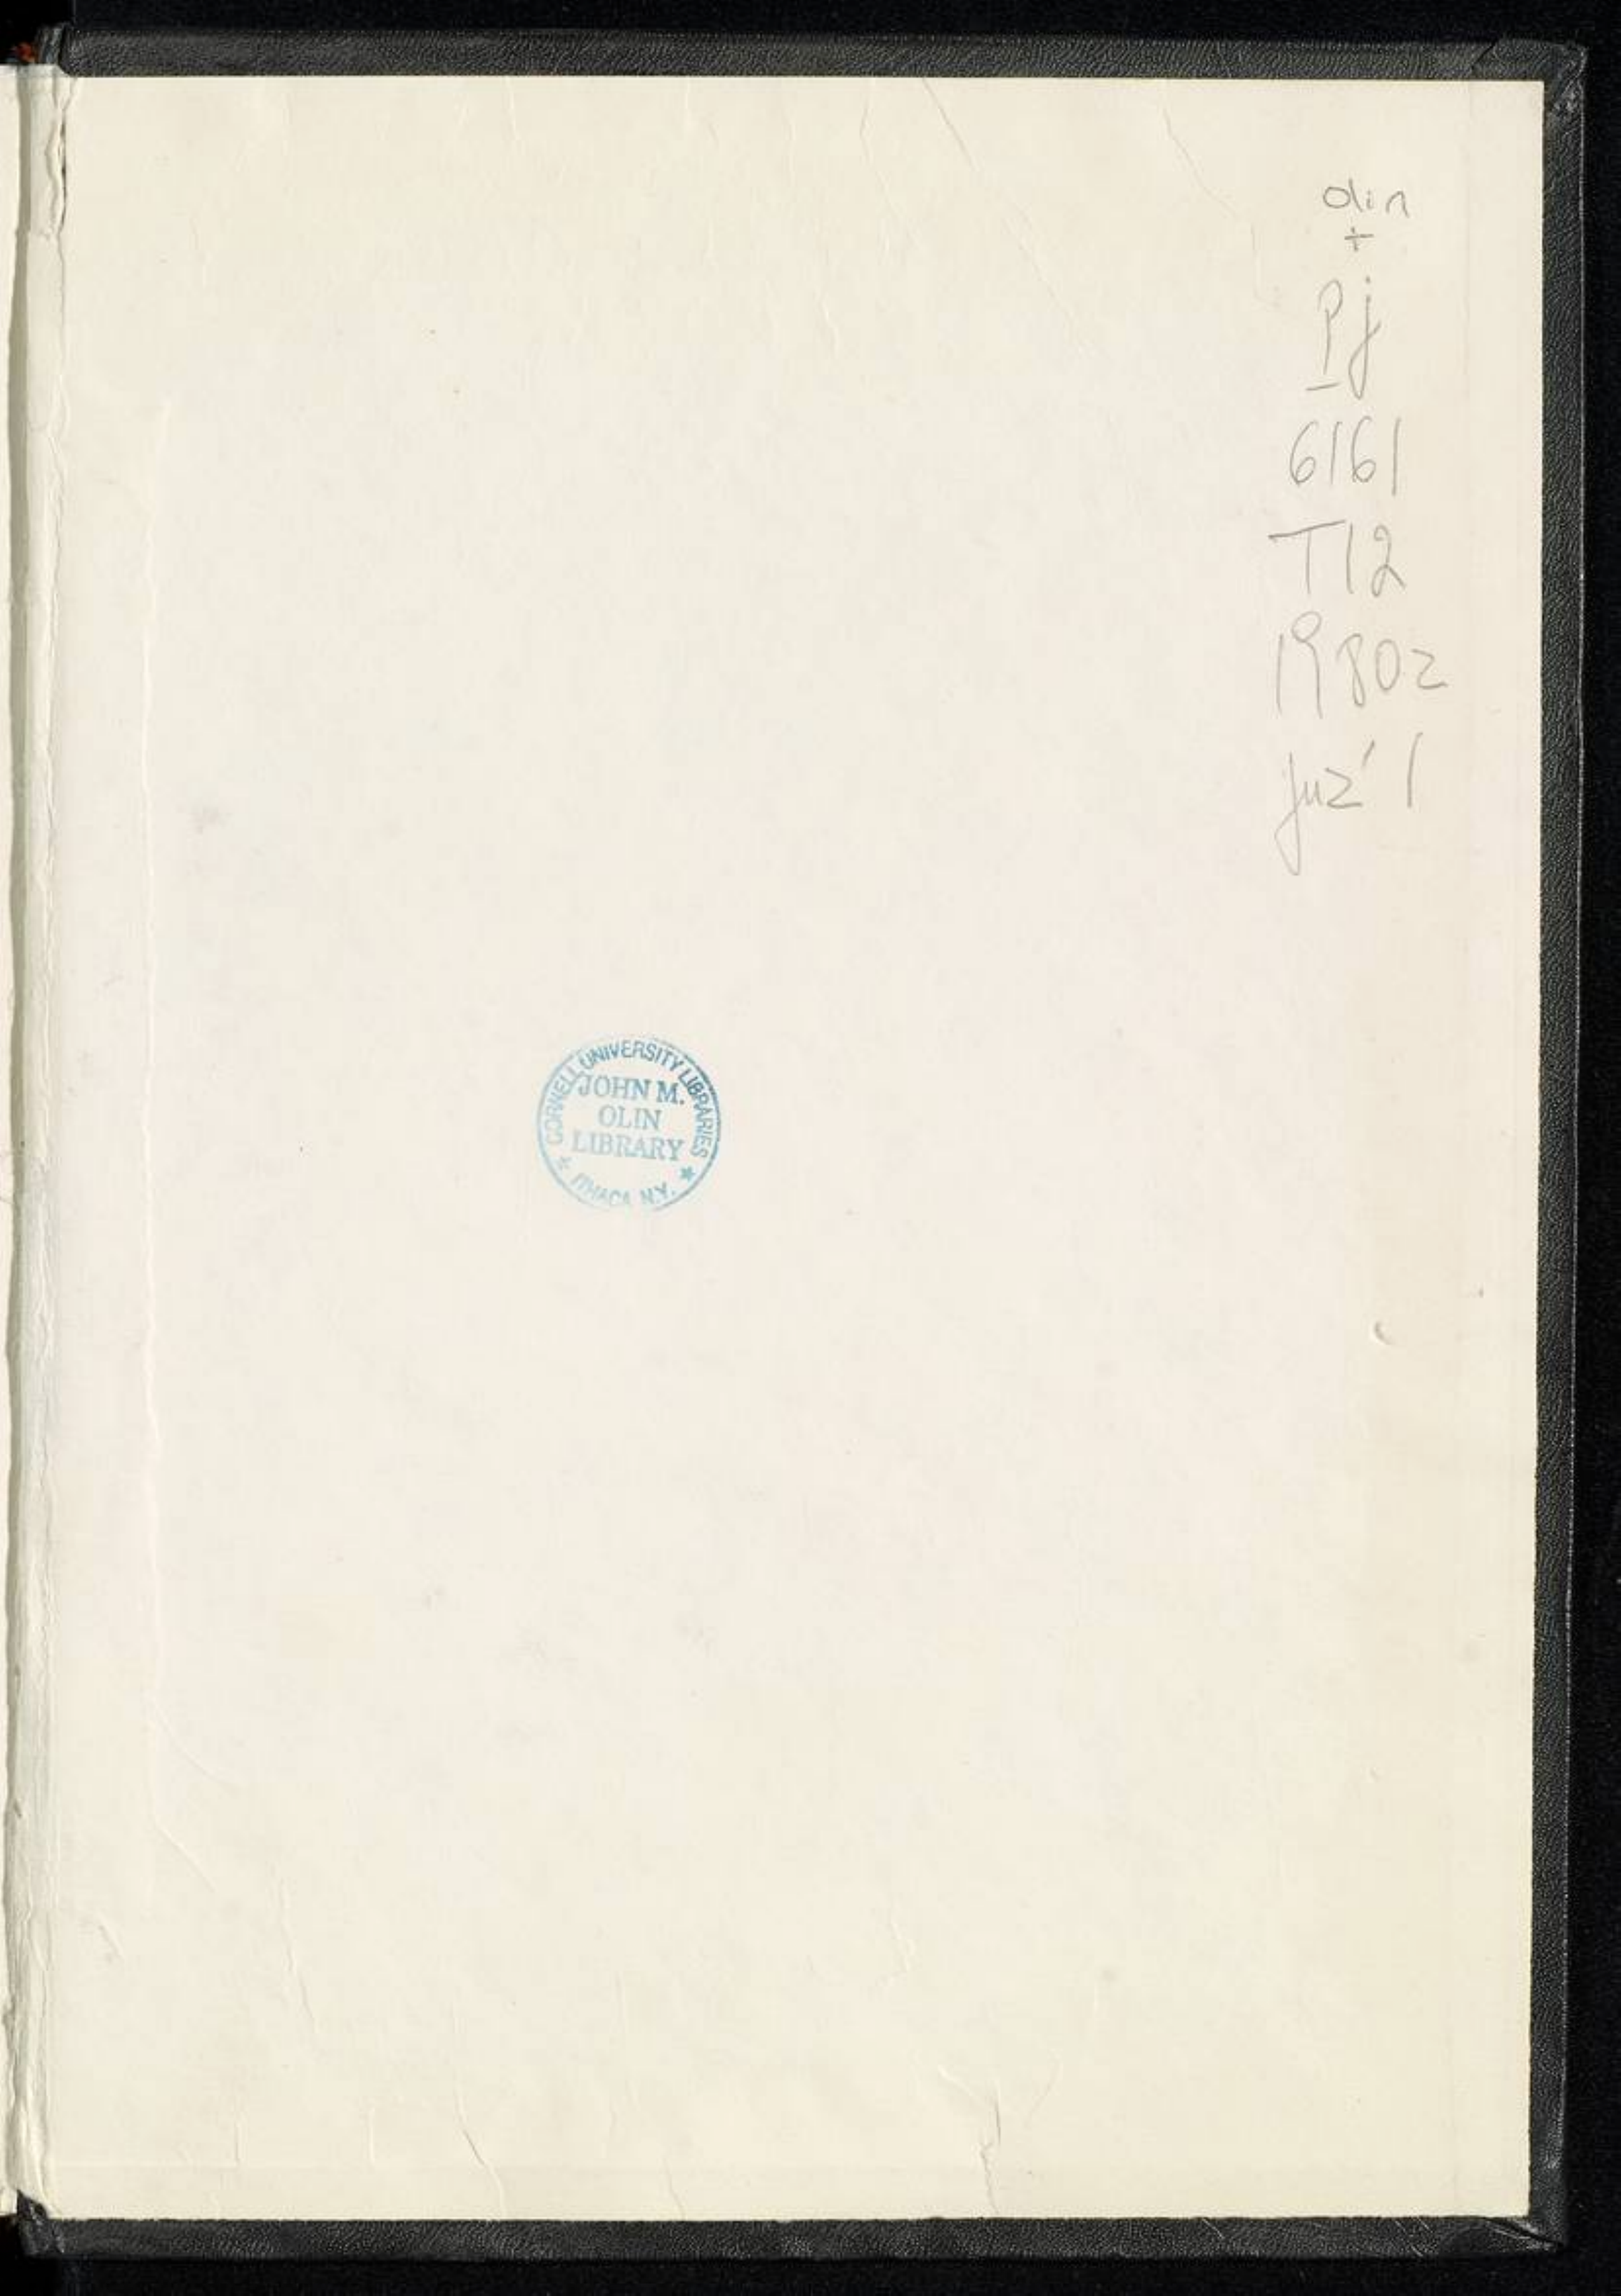 olin
+
Pj
6161
T12
1980z
juz' 1
CORNELL UNIVERSITY LIBRARIES
JOHN M.
OLIN
LIBRARY
* ITHACA N.Y. *